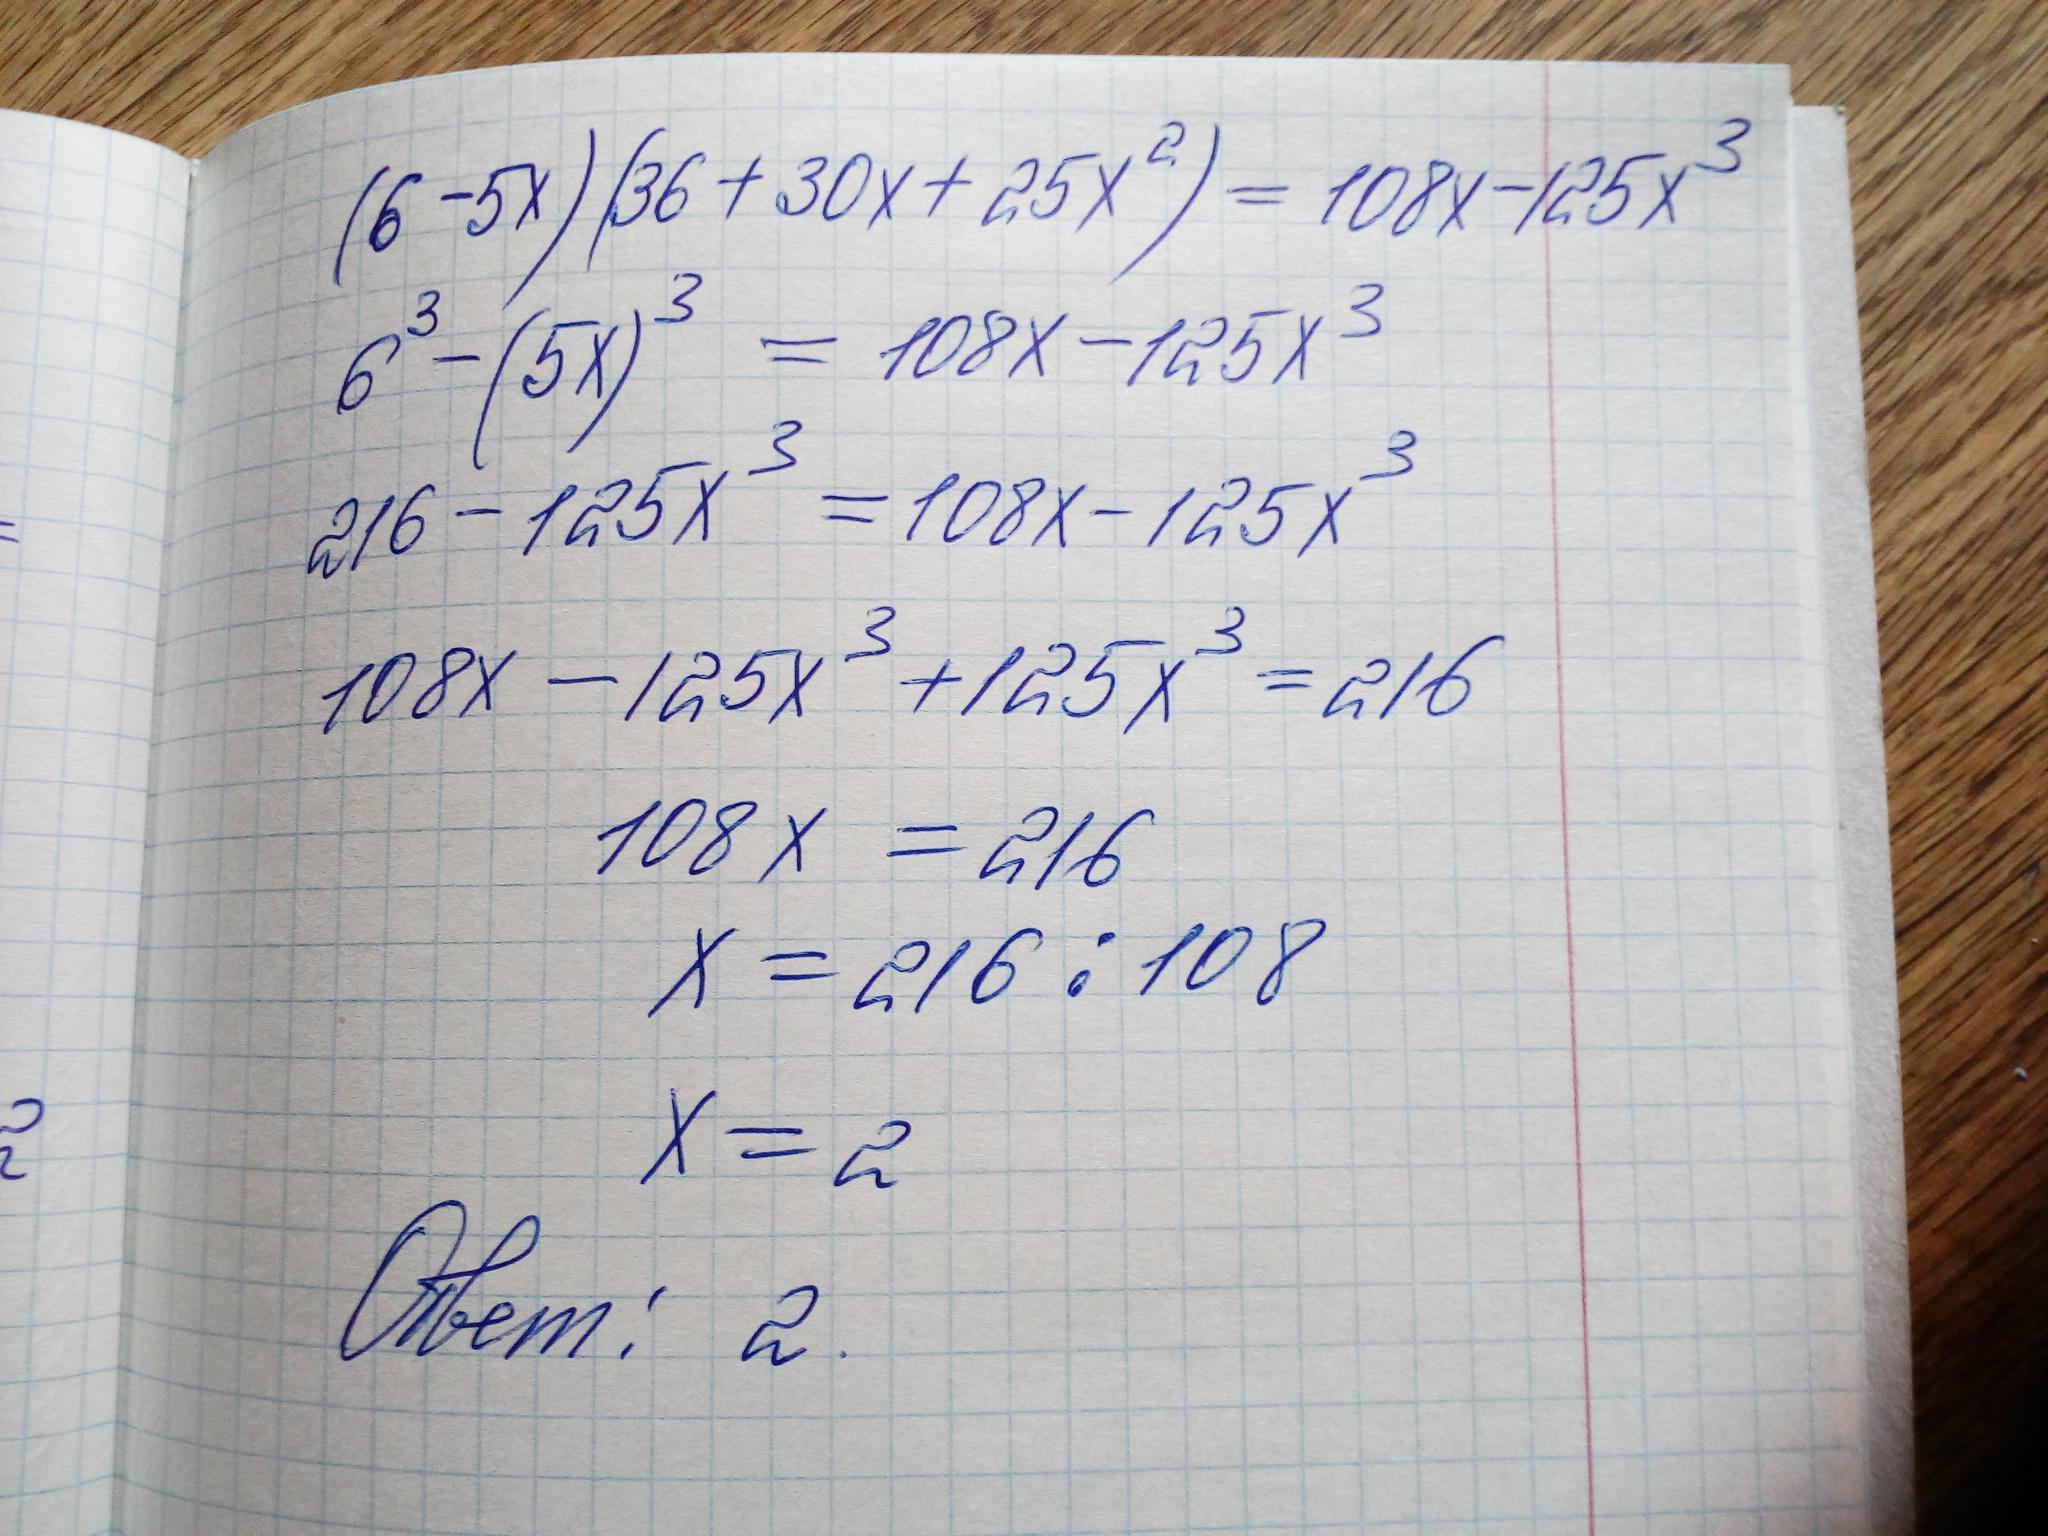 (6-5x)(36+30x+25x²)=108x-125x³
6³-(5x)³ = 108x-125x³
=
216-125x³ =108x-125x³
108x-125x³+125x³=216
108x = 216
x = 216:108
2
x = 2
Ответ: 2.